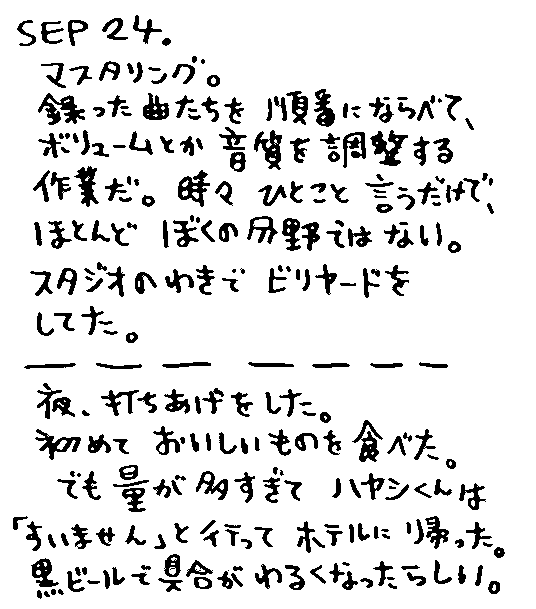 SEP 24.
マスタリング。
録った曲たちを 順番にならべて、
ボリュームとか 音質を調整する
作業だ。時々 ひとこと 言うだけで、
ほとんど ぼくの分野ではない。
スタジオのわきで ビリヤードを
してた。
夜、打ちあげをした。
初めて おいしいものを食べた。
でも量が多すぎて ハヤシくんは
「すいません」と行って ホテルに帰った。
黒ビールで具合がわるくなったらしい。